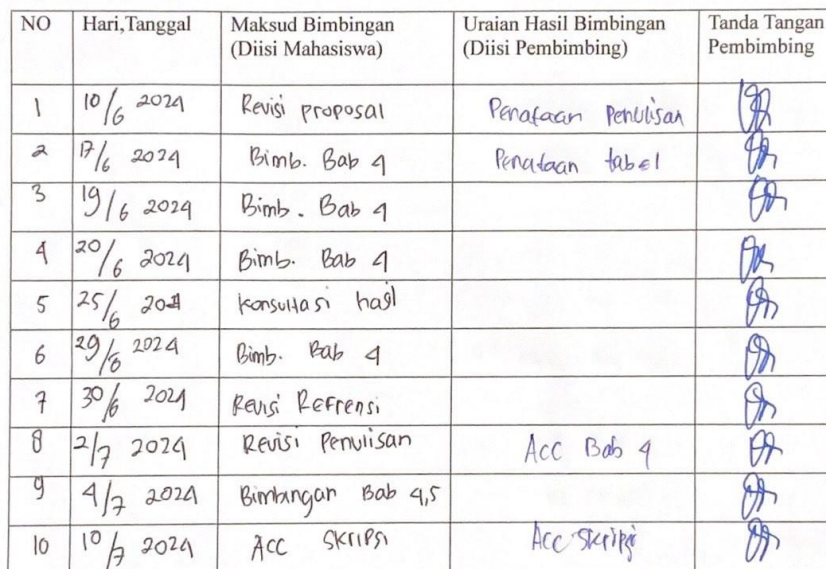 NO Hari,Tanggal Maksud Bimbingan Uraian Hasil Bimbingan Tanda Tangan
(Diisi Mahasiswa) (Diisi Pembimbing) Pembimbing
1 10/6 2024 Revisi proposal Penataan Penulisan
2 17/6 2024 Bimb. Bab 4 Penataan tabel
3 19/6 2024 Bimb. Bab 4
4 20/6 2024 Bimb. Bab 4
5 25/6 Konsultasi hasil
6 29/6 2024 Bimb. Bab 4
7 30/6 2024 Revisi Refrensi
8 2/7 2024 Revisi Penulisan Acc Bab 4
9 4/7 2024 Bimbingan Bab 4,5
10 10/7 2024 Acc Skripsi Acc Skripsi